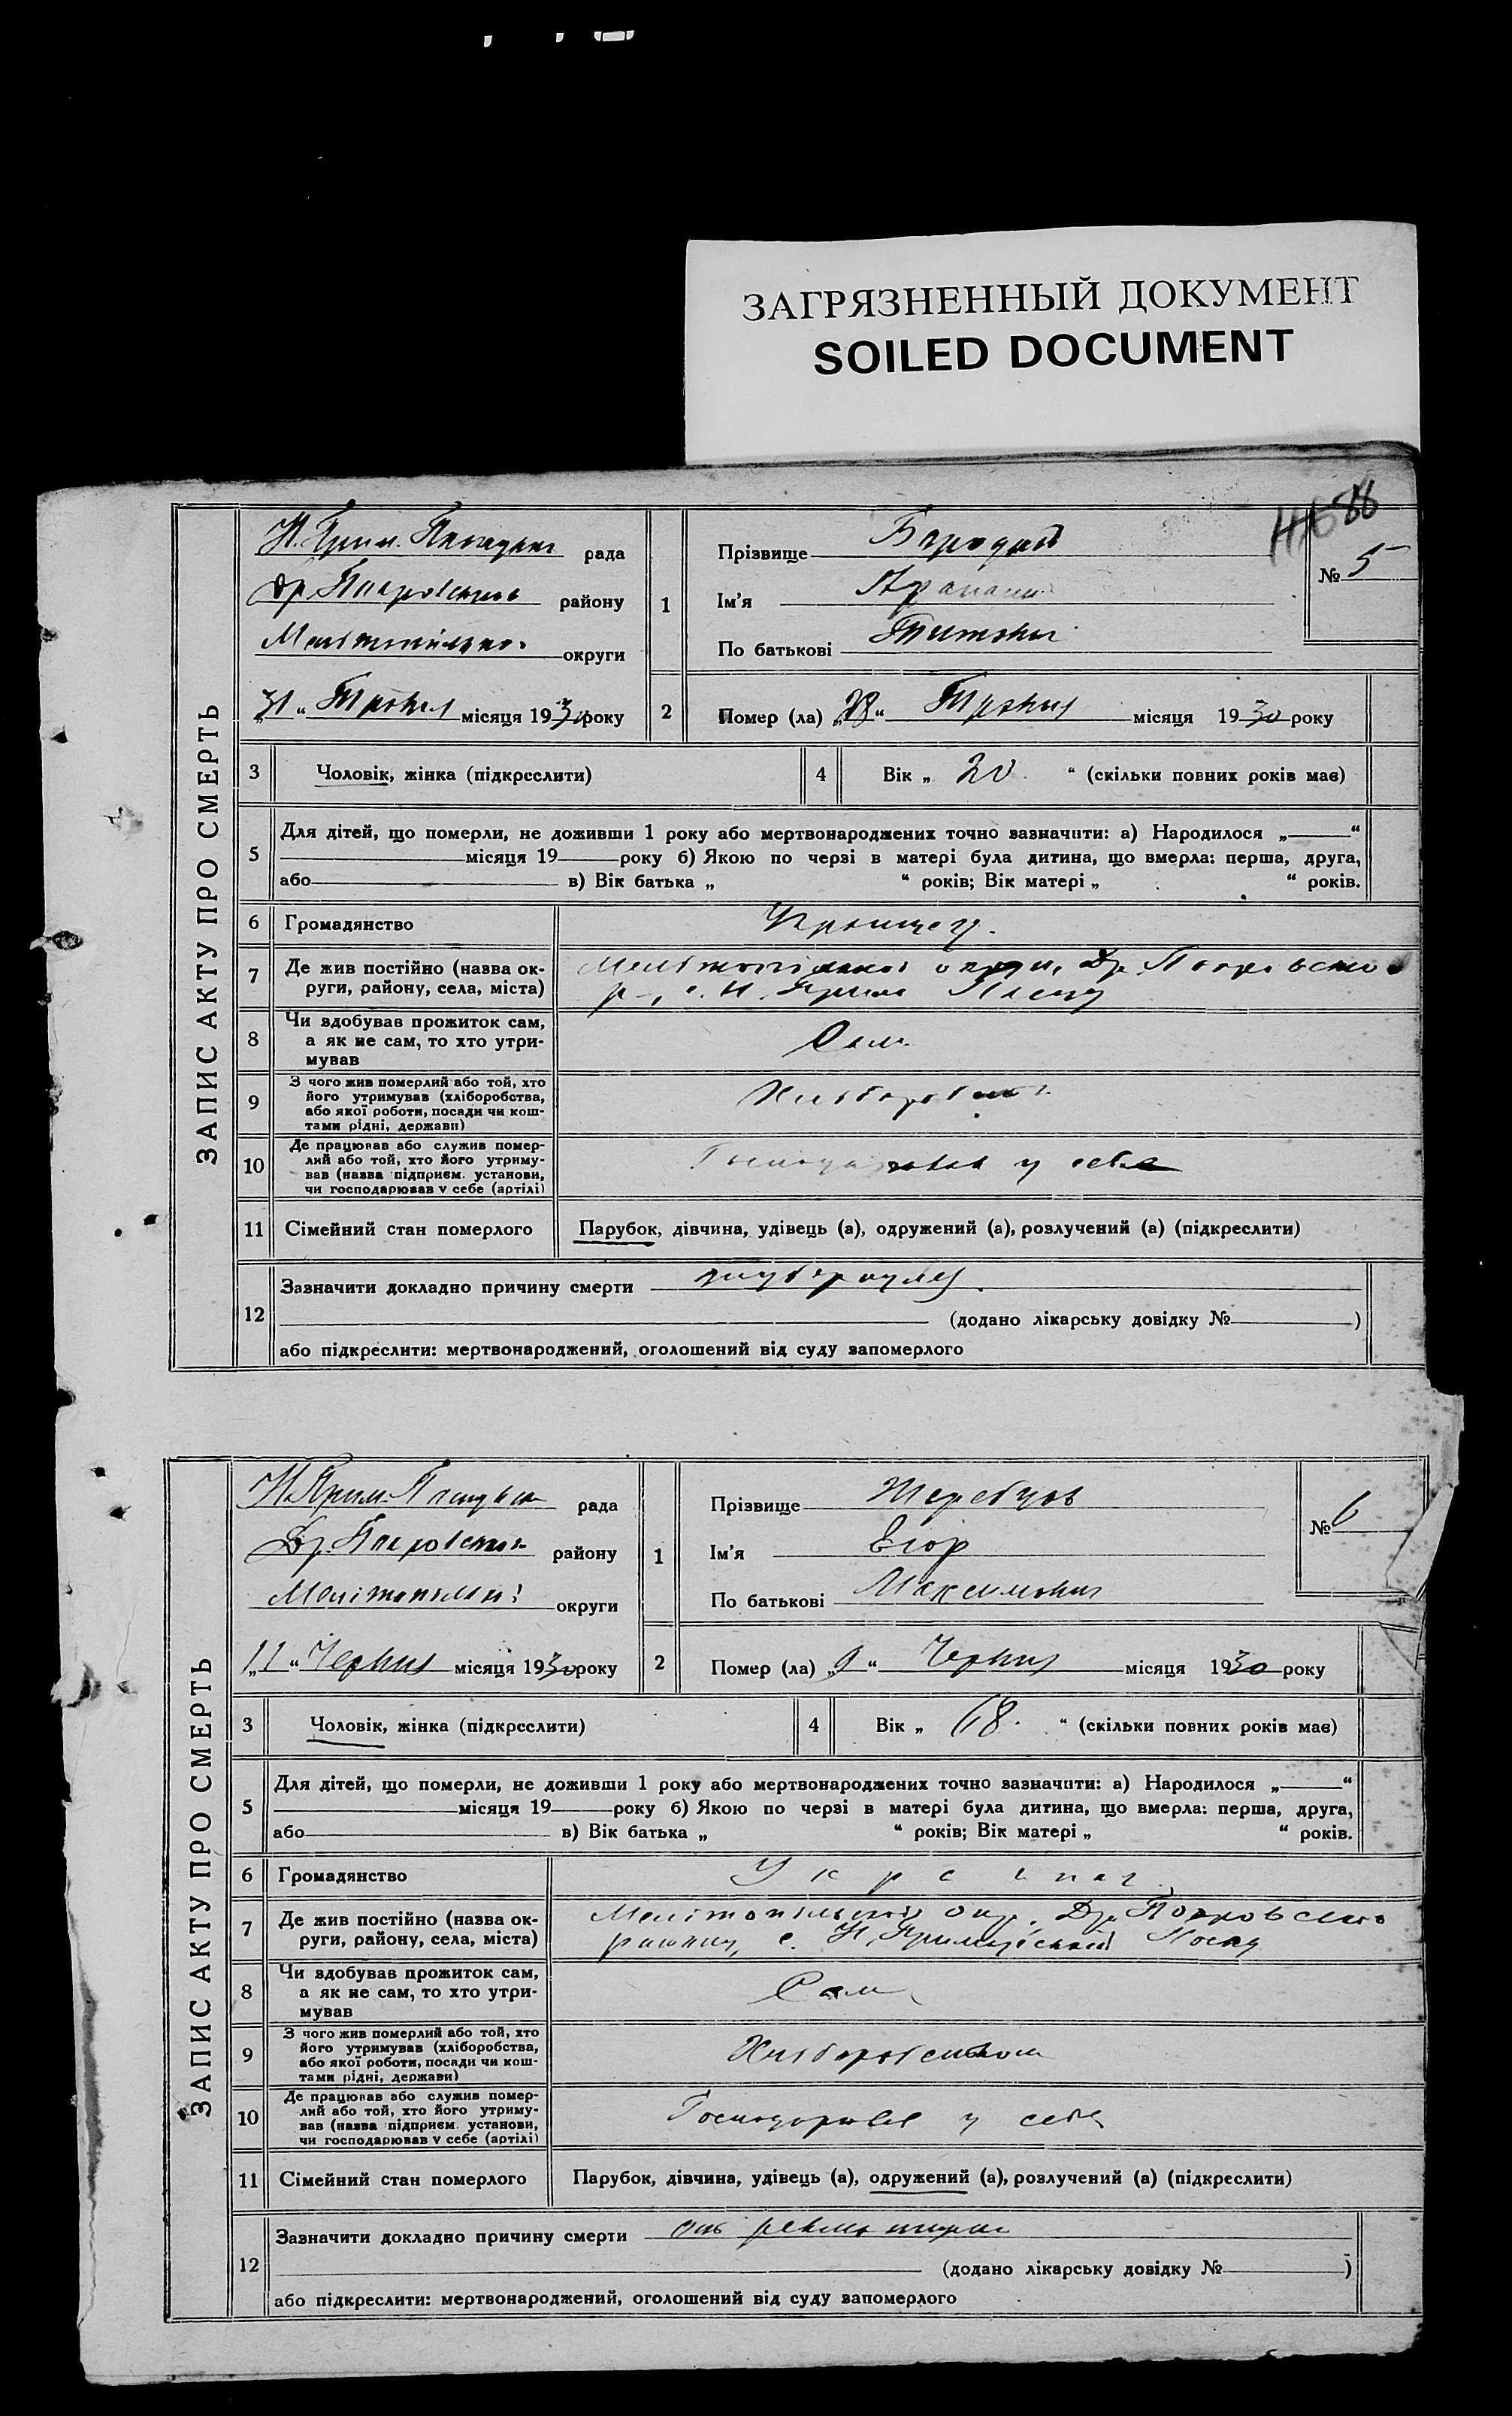 ЗАГРЯЗНЕННЫЙ ДОКУМЕНТ
SOILED DOCUMENT
ЗАПИС АКТУ ПРО СМЕРТЬ
рада
району
округи
31 “ Травня місяця 1930 року
1
Прізвище
Ім’я
По батькові Титович
№ 5
2
Помер (ла) „28“ Травня місяця 1930 року
3 Чоловік, жінка (підкреслити)
4 Вік „ 20 “ (скільки повних років має)
5
Для дітей, що померли, не доживши 1 року або мертвонароджених точно зазначити: а) Народилося „ “
місяця 19 року б) Якою по черзі в матері була дитина, що вмерла: перша, друга,
або в) Вік батька „ “ років; Вік матері „ “ років.
6 Громадянство
7 Де жив постійно (назва ок-
руги, району, села, міста)
8 Чи здобував прожиток сам,
а як не сам, то хто утри-
мував
Сам
9 З чого жив померлий або той, хто
його утримував (хліборобства,
або якої роботи, посади чи кош-
тами рідні, держави)
10 Де працював або служив помер-
лий або той, хто його утриму-
вав (назва підприєм. установи,
чи господарював у себе (артілі)
Господарював у себе
11 Сімейний стан померлого Парубок, дівчина, удівець (а), одружений (а), розлучений (а) (підкреслити)
12
Зазначити докладно причину смерти туберкульоз
(додано лікарську довідку № )
або підкреслити: мертвонароджений, оголошений від суду запомерлого
ЗАПИС АКТУ ПРО СМЕРТЬ
рада
району
округи
„11“ Червня місяця 1930 року
1
Прізвище Жеребцов
Ім’я Егор
По батькові Максимович
№ 6
2
Помер (ла) „9“ Червня місяця 1930 року
3 Чоловік, жінка (підкреслити)
4 Вік „ 68. “ (скільки повних років має)
5
Для дітей, що померли, не доживши 1 року або мертвонароджених точно зазначити: а) Народилося „ “
місяця 19 року б) Якою по черзі в матері була дитина, що вмерла: перша, друга,
або в) Вік батька „ “ років; Вік матері „ “ років.
6 Громадянство
7 Де жив постійно (назва ок-
руги, району, села, міста)
8 Чи здобував прожиток сам,
а як не сам, то хто утри-
мував
Сам
9 З чого жив померлий або той, хто
його утримував (хліборобства,
або якої роботи, посади чи кош-
тами рідні, держави)
Хліборобством
10 Де працював або служив помер-
лий або той, хто його утриму-
вав (назва підприєм. установи,
чи господарював у себе (артілі)
Господорював у себе
11 Сімейний стан померлого Парубок, дівчина, удівець (а), одружений (а), розлучений (а) (підкреслити)
12
Зазначити докладно причину смерти
(додано лікарську довідку № )
або підкреслити: мертвонароджений, оголошений від суду запомерлого